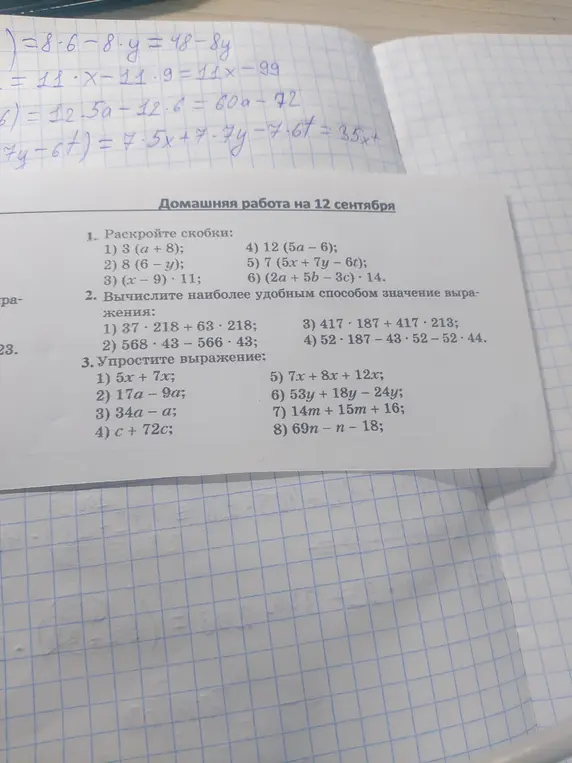 ) = 8 · 6 − 8 · y = 48 − 8y
= 11 · x − 11 · 9 = 11x − 99
6) = 12 · 5a − 12 · 6 = 60a − 72
7y − 6t) = 7 · 5x + 7 · 7y − 7 · 6t = 35x +
Домашняя работа на 12 сентября
1. Раскройте скобки:
1) 3 (a + 8); 4) 12 (5a − 6);
2) 8 (6 − y); 5) 7 (5x + 7y − 6t);
3) (x − 9) · 11; 6) (2a + 5b − 3c) · 14.
2. Вычислите наиболее удобным способом значение выра-
жения:
1) 37 · 218 + 63 · 218; 3) 417 · 187 + 417 · 213;
2) 568 · 43 − 566 · 43; 4) 52 · 187 − 43 · 52 − 52 · 44.
3. Упростите выражение:
1) 5x + 7x; 5) 7x + 8x + 12x;
2) 17a − 9a; 6) 53y + 18y − 24y;
3) 34a − a; 7) 14m + 15m + 16;
4) c + 72c; 8) 69n − n − 18;
ра-
23.